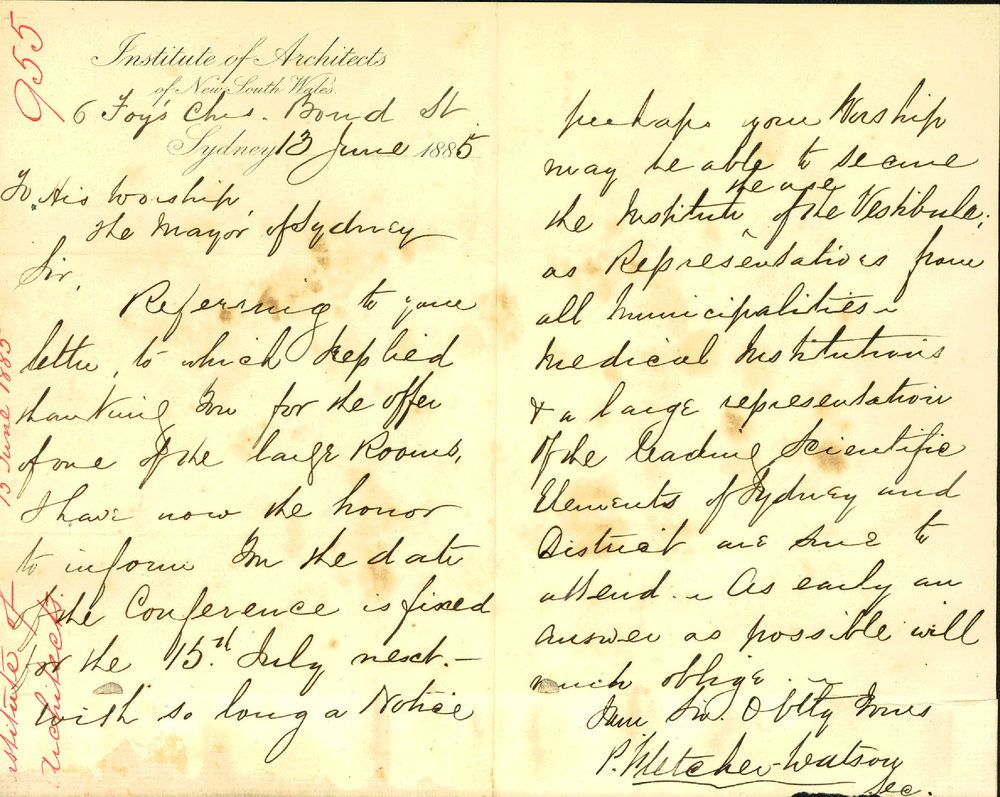 955
Institute of Architects
of New South Wales.
6 Foy's Chrs. Bond St.
Sydney 13 June 1885
To His Worship,
the Mayor of Sydney
Sir,
Referring to your
letter, to which I replied
thanking You for the offer
of one of the large Rooms,
I have now the honor
to inform You the date
of the Conference is fixed
for the 15th July next.—
With so long a Notice
perhaps your Worship
may be able to secure
the use
the Institute of the Vestibule,
as Representatives from
all Municipalities
Medical Institutions
& a large representation
Of the leading Scientific
Elements of Sydney and
District are sure to
attend. As early an
answer as possible will
much oblige
I am Sir. Obltly Yours
P. Fletcher-Watson
Sec.
13 June 1885
stitute of
rchitects